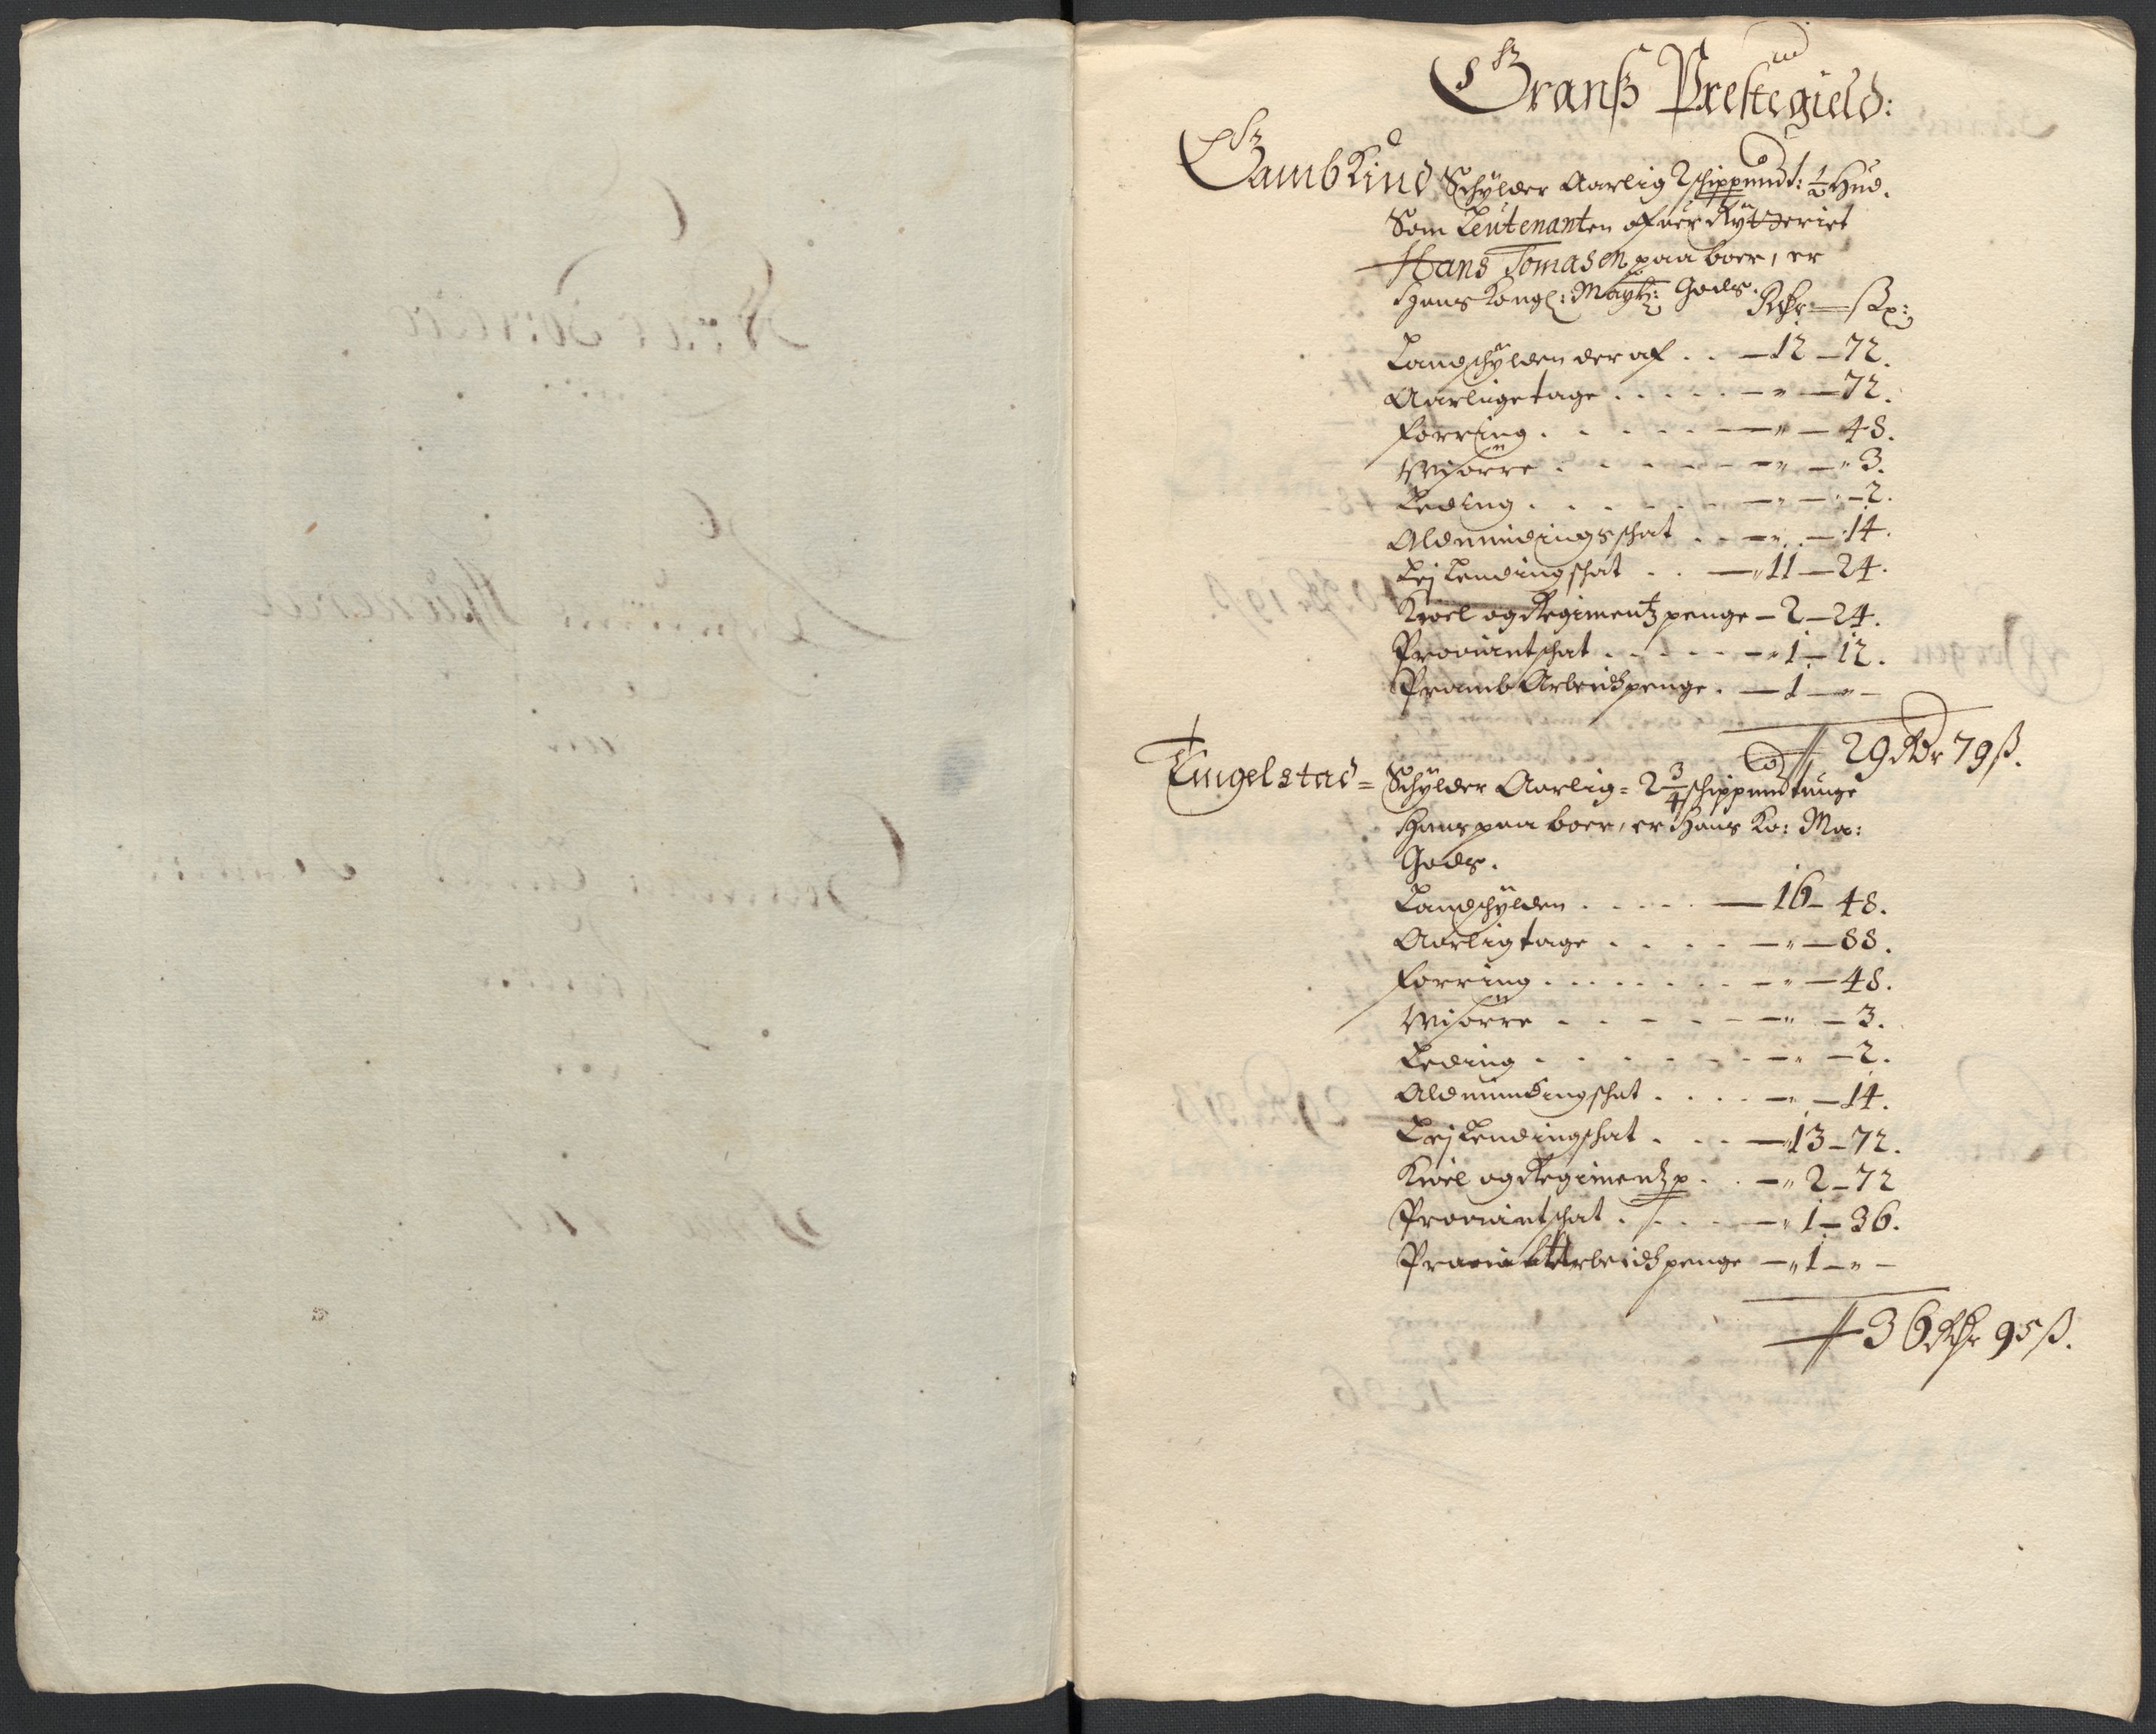 Granß Prestegield:
Gambkind Schÿlder Aarlig 2 schippundt: ½ Hud.
Som Leutenanten ofuer Rÿtteriet
Hans Tomasen paa boer, er
Hans Kongl: Maÿtz: Gods. Rdr — ß
Landschÿlden der af . . — 12 — 72.
Aarligetage . . . . . — " — 72.
Forring . . . . . — " — 48.
Wisøre . . . . . — " — " 3.
Leding . . . . . — " — 2.
Aldmindingsschat . . — " — 14.
Leilendingschat . . — " 11 — 24.
Kvoel og Regimentz penge — 2 — 24.
Proviantschat . . . . — " 1 — 12.
Pramb Arbeidspenge . — 1 — " —
29 Rdr 79 ß.
Tingelstad = Schÿlder Aarlig = 2 3/4 schippund tunge
Hans paa boer, er Hans Ko: Ma:
Gods.
Landschÿlden . . . . . — 16 — 48.
Aarligtage . . . . — " — 88.
Forring . . . . . . . — " — 48.
Wisøre . . . . . — " — 3.
Leding . . . . . . — " — 2.
Aldmindingschat . . . . — " — 14.
Leilendingschat . . . — " 13 — 72.
Kvoel og Regimentz p . . — " 2 — 72
Proviantschat . . . . — " 1 — 36.
Arbeidspenge — " 1 — " —
36 Rdr 95 ß.